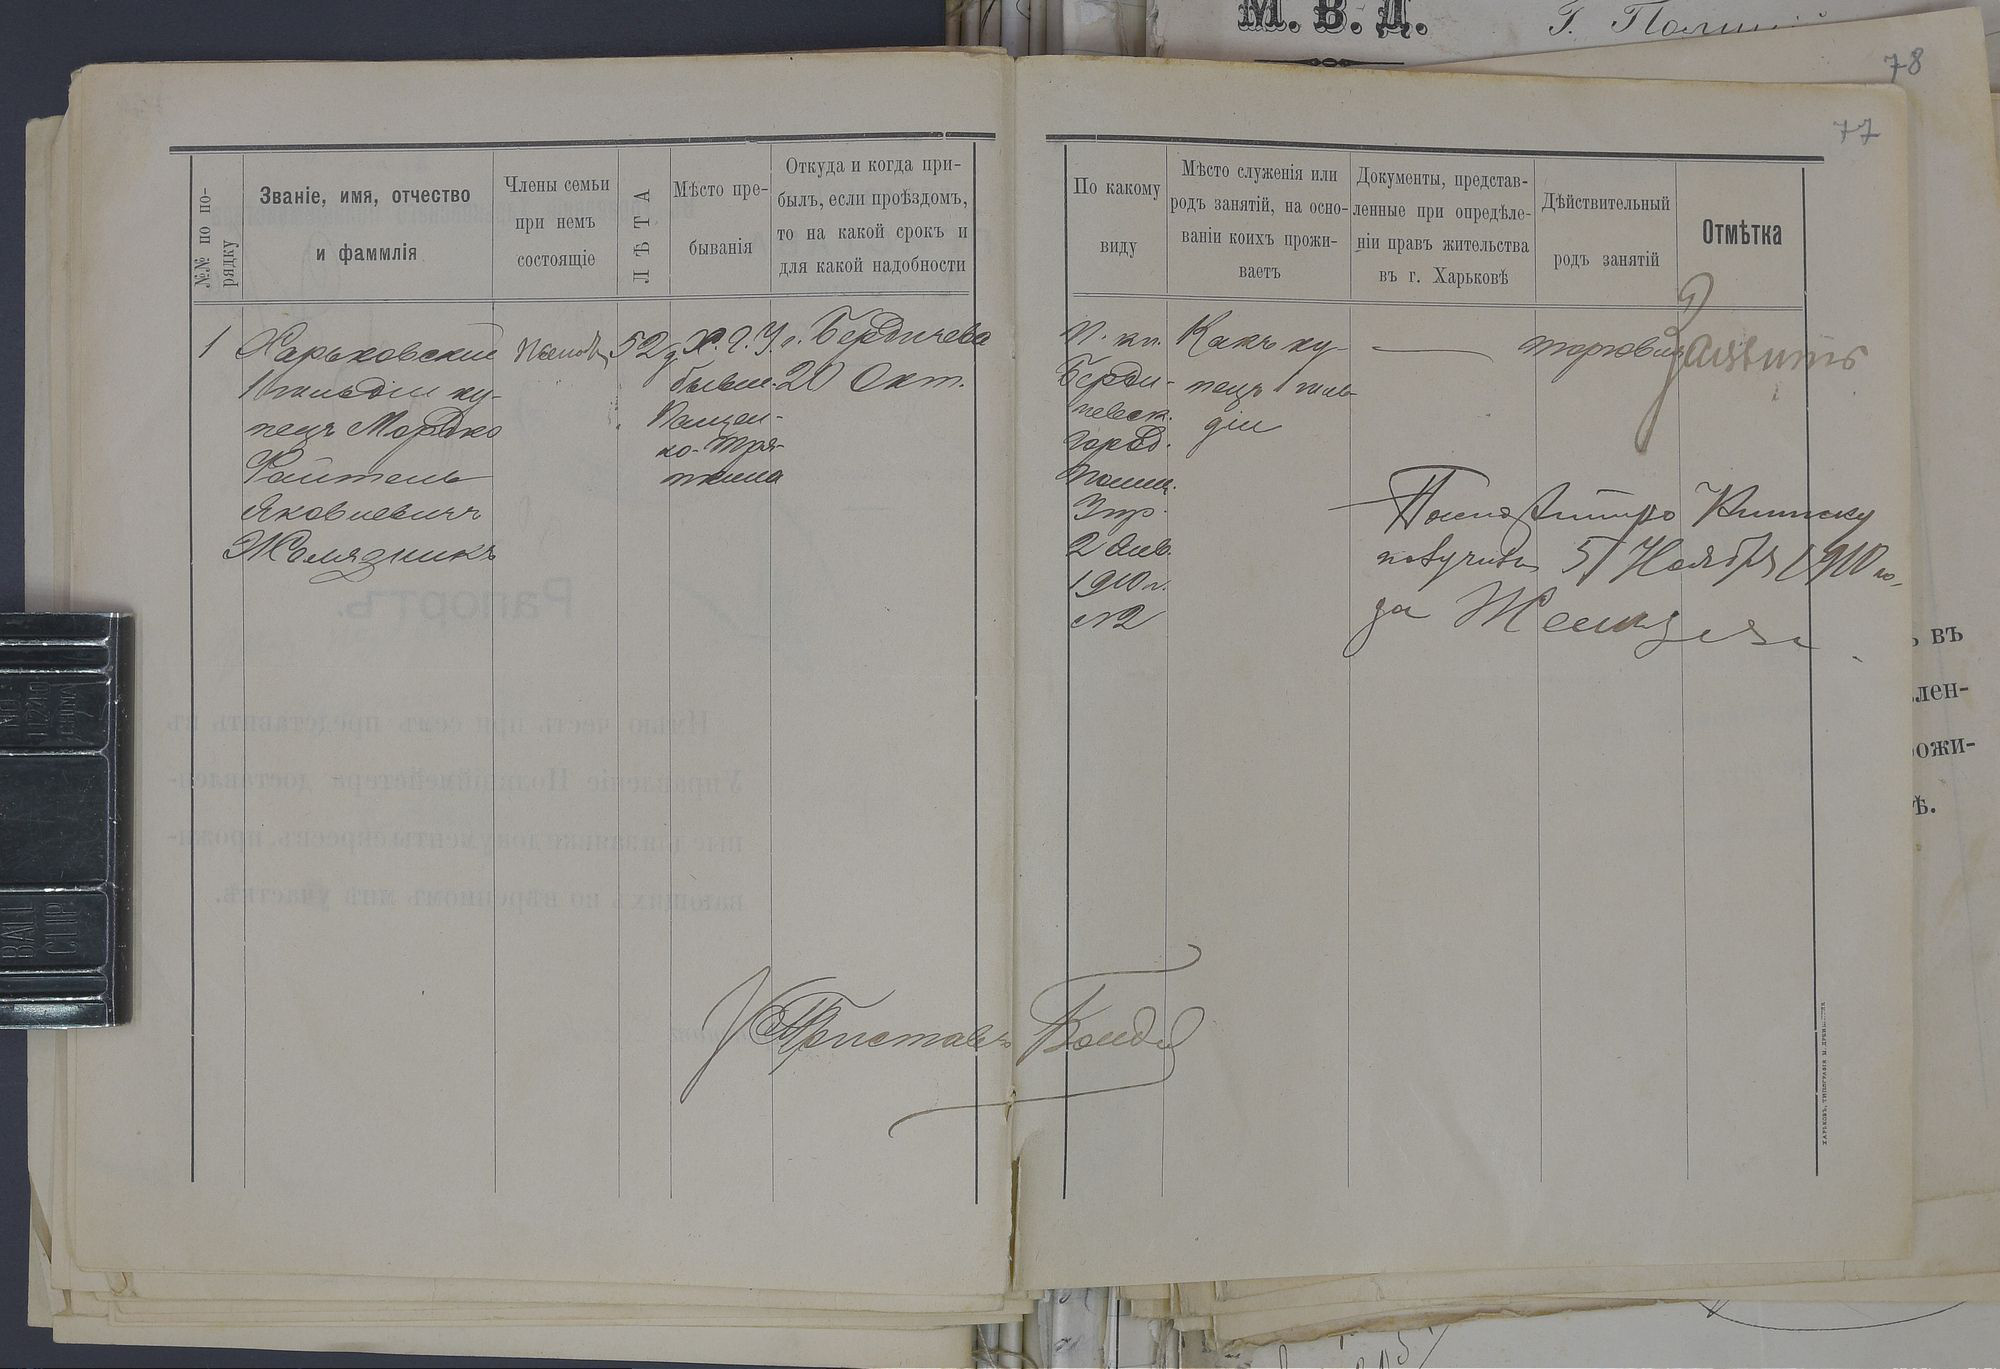 М. В. Д.
78
77
№№ по по-
рядку
Званіе, имя, отчество
и фаммлія
Члены семьи
при немъ
состоящіе
ЛѢТА
Мѣсто пре-
быванія
Откуда и когда при-
былъ, если проѣздомъ,
то на какой срокъ и
для какой надобности
1
Харьковскій
1 гильдіи ку-
пецъ Мордко
Файтель
Яковлевичъ
Железникъ
52
Х. Г. У.
бывш.
г. Бердичева
20 Окт.
По какому
виду
Мѣсто служенія или
родъ занятій, на осно-
ваніи коихъ прожи-
ваетъ
Документы, представ-
ленные при опредѣле-
ніи правъ жительства
въ г. Харьковѣ
Дѣйствительный
родъ занятій
Отмѣтка
П. кн.
Берди-
чевск.
Город.
Полиц.
Упр.
2 Янв.
1910 г.
№2
Какъ ку-
пецъ 1 гиль-
діи
торговля
книжку
получилъ 5 Ноября 1910 го-
да
Приставъ
Рапортъ.
Имѣю честь при семъ представить въ
Управленіе Полиціймейстера доставлен-
ные документы евреевъ, прожи-
вающихъ во ввѣренномъ мнѣ участкѣ.
въ
лен-
ожи-
ѣ.
NO.
11240
CHINA
BALL
CLIP